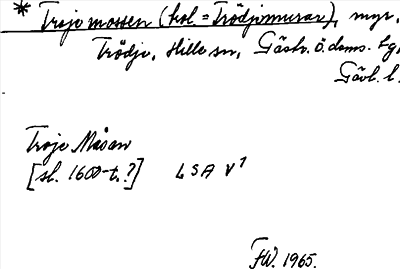 * Troje mossen (hol = Trödjemuran), myr,
Trödje, Hille sn, Gästr. ö. doms. tg,
Gävl. l.
Troje Måsan
[sl. 1600-t.?] LSA V 1
FW. 1965.